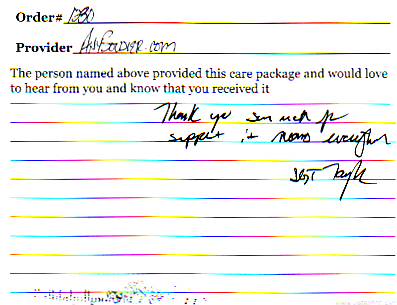 Order# 1080
Provider AnySoldier.com
The person named above provided this care package and would love
to hear from you and know that you received it
Thank you so much for
support it means everything
SGT